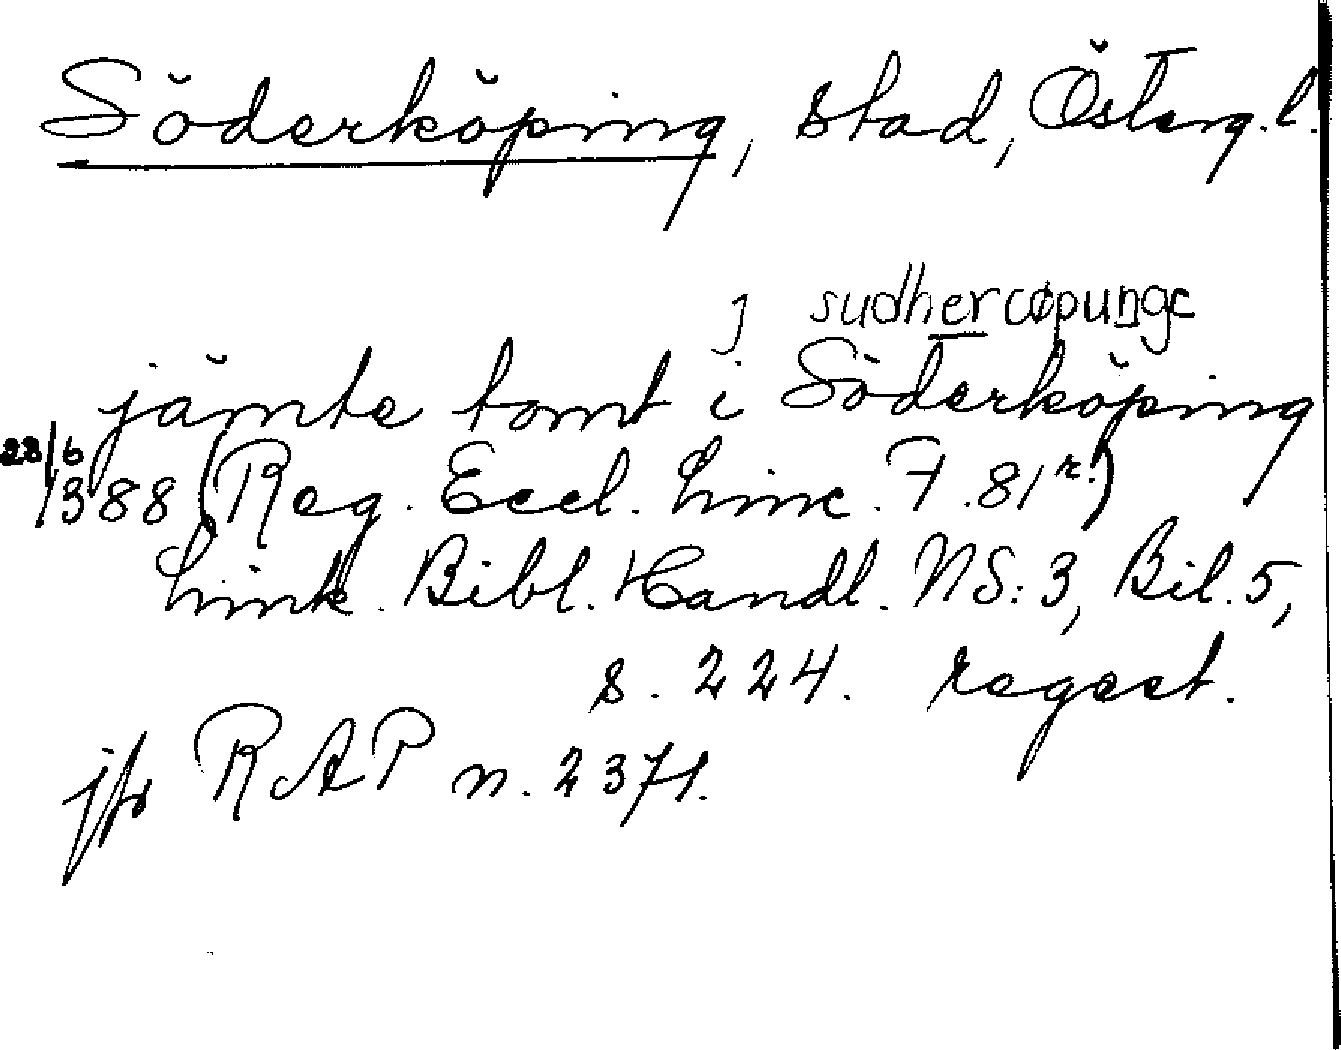 Söderköping, stad, Österg. l.
j sudhercøpunge
jämte tomt i Söderköping
22/6
1388 (Reg. Eccl. Linc. F. 81 r.)
Link. Bibl. Handl. NS: 3, Bil. 5,
s. 224. regest.
jfr RAP n. 2371.